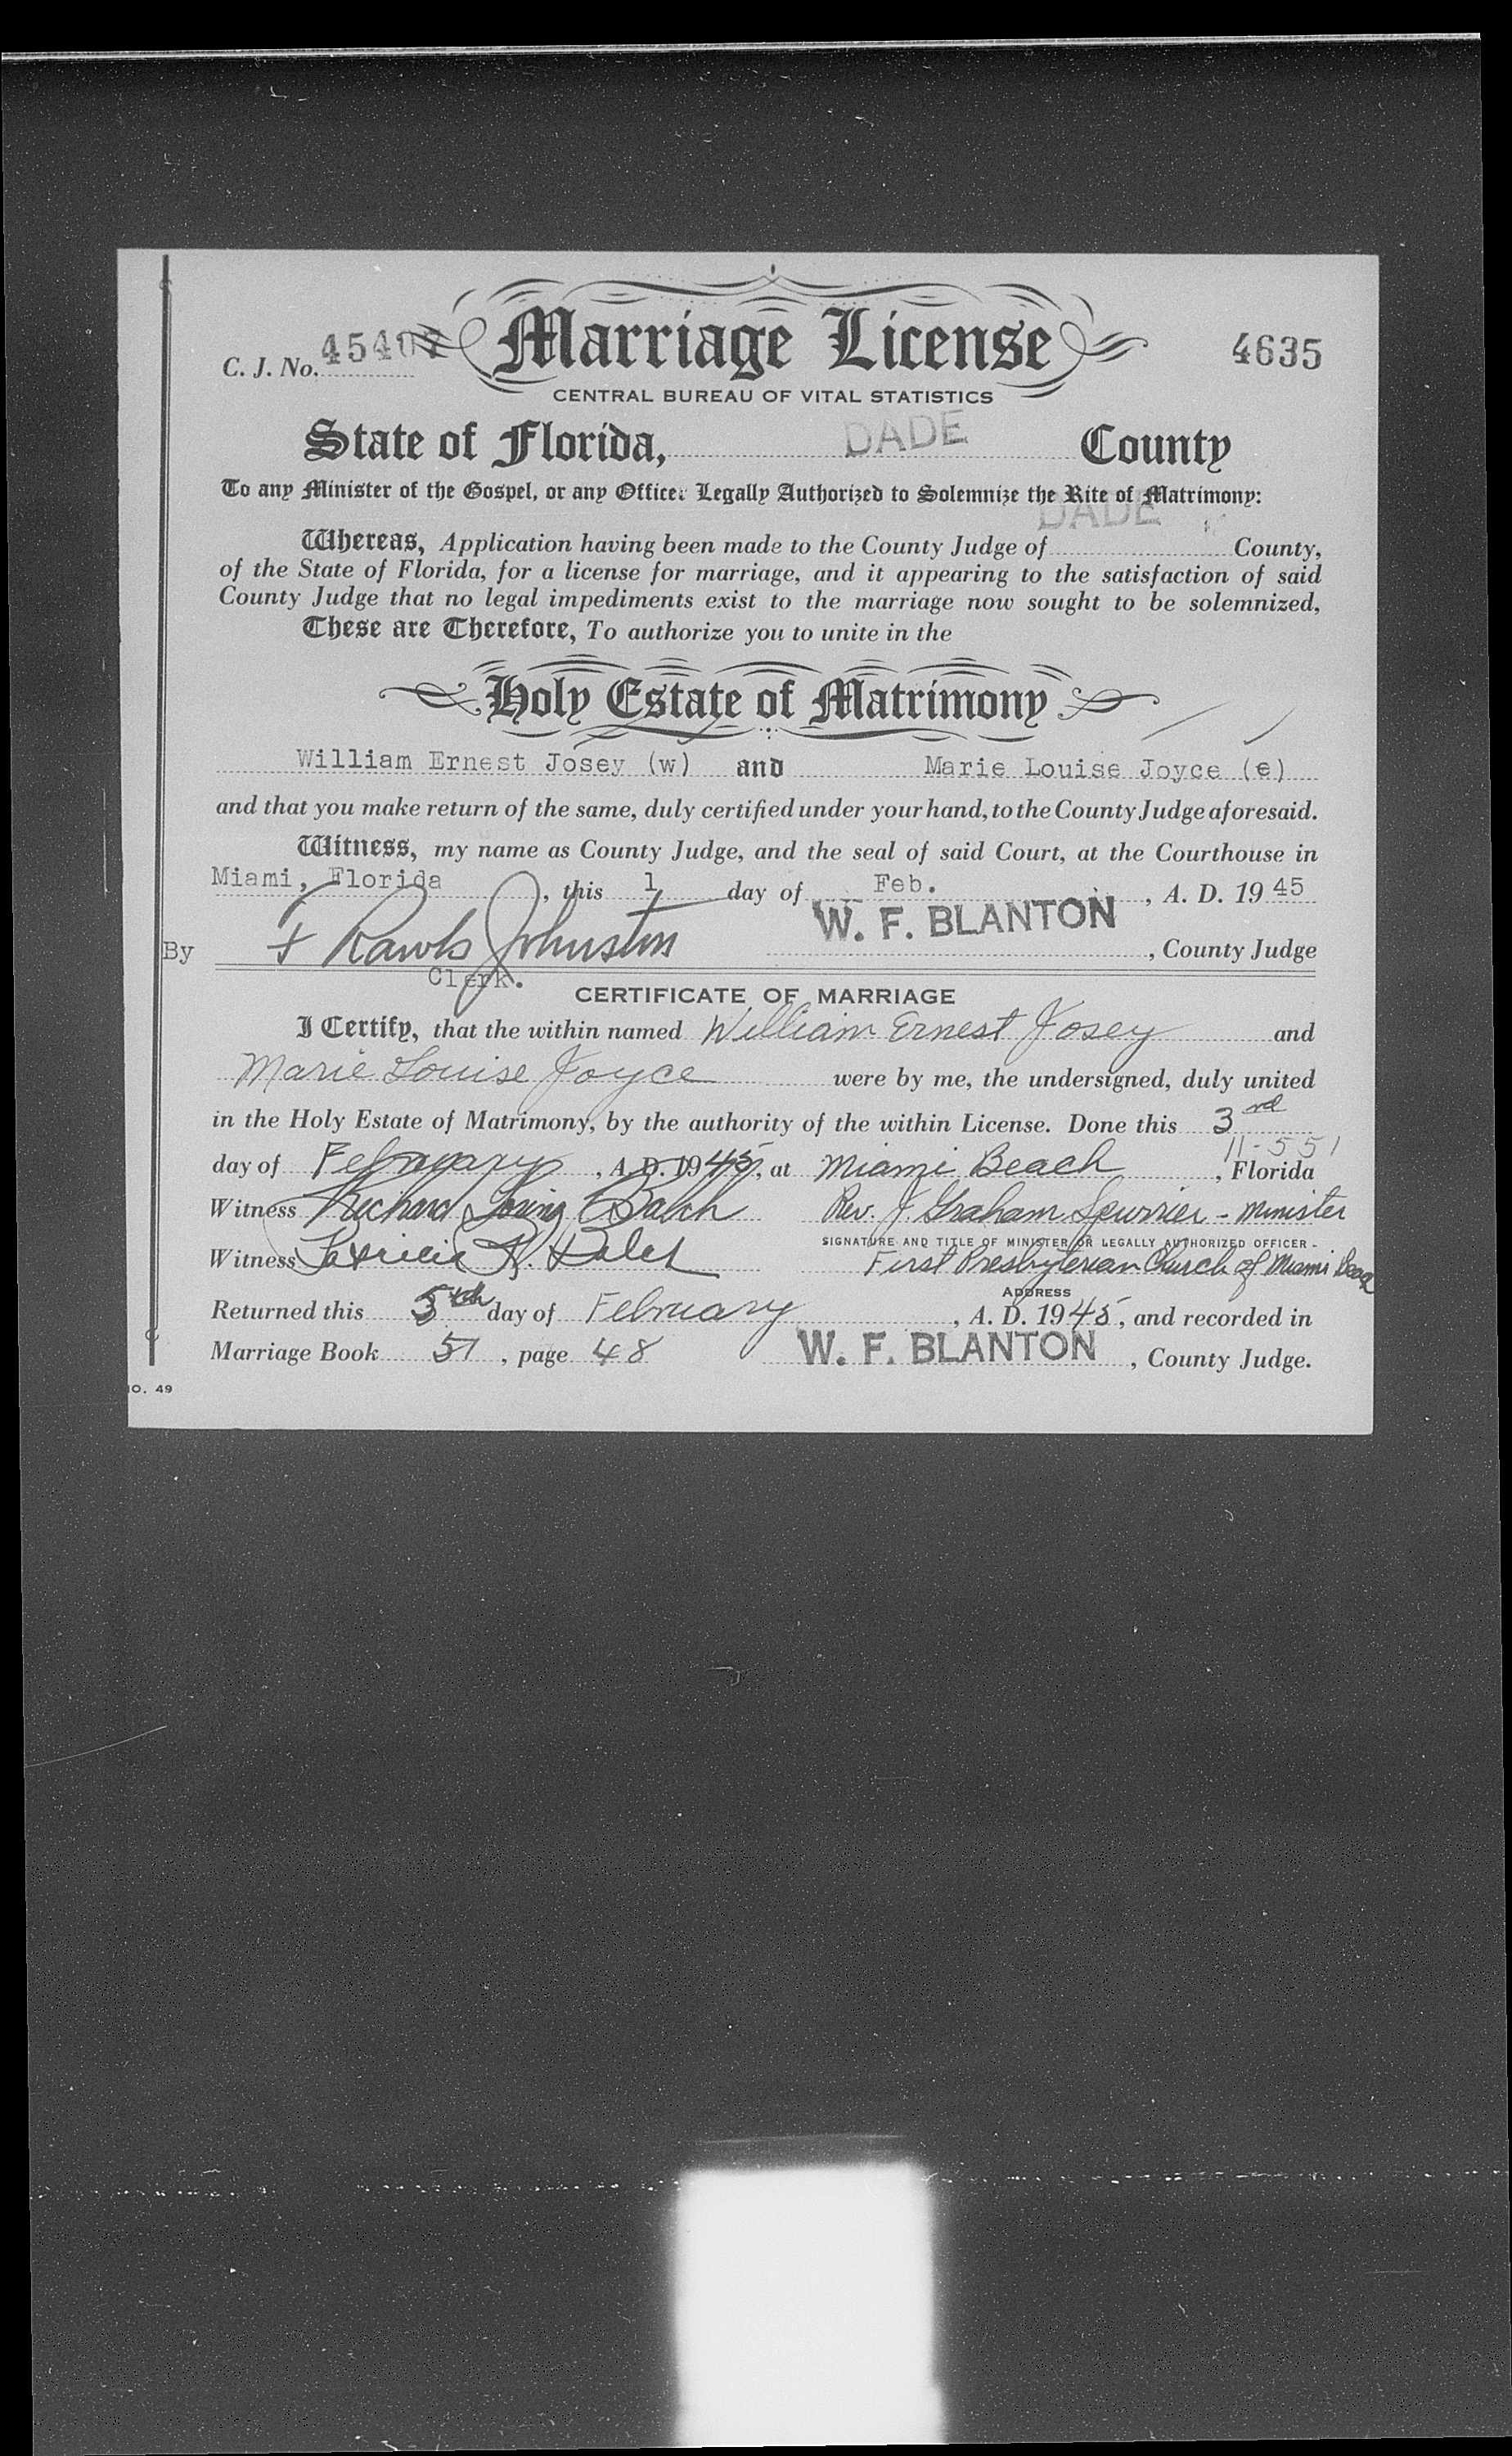 Marriage License
C. J. No. 45407
4635
CENTRAL BUREAU OF VITAL STATISTICS
State of Florida, DADE County
To any Minister of the Gospel, or any Officer Legally Authorized to Solemnize the Rite of Matrimony:
DADE
Whereas, Application having been made to the County Judge of County,
of the State of Florida, for a license for marriage, and it appearing to the satisfaction of said
County Judge that no legal impediments exist to the marriage now sought to be solemnized,
These are Therefore, To authorize you to unite in the
Holy Estate of Matrimony
William Ernest Josey (w) and Marie Louise Joyce (e)
and that you make return of the same, duly certified under your hand, to the County Judge aforesaid.
Witness, my name as County Judge, and the seal of said Court, at the Courthouse in
Miami, Florida, this 1 day of Feb., A. D. 19 45
W. F. BLANTON
By Rawls Johnston , County Judge
Clerk.
CERTIFICATE OF MARRIAGE
I Certify, that the within named William Ernest Josey and
Marie Louise Joyce were by me, the undersigned, duly united
in the Holy Estate of Matrimony, by the authority of the within License. Done this 3rd
11-551
day of February, A. D. 1945, at Miami Beach, Florida
Witness Richard Loring Balch Rev. J. Graham Spurrier - Minister
SIGNATURE AND TITLE OF MINISTER OR LEGALLY AUTHORIZED OFFICER
Witness Patricia R. Balch First Presbyterian Church of Miami Beach
ADDRESS
Returned this 5th day of February, A. D. 1945, and recorded in
Marriage Book 51, page 48 W. F. BLANTON, County Judge.
O. 49